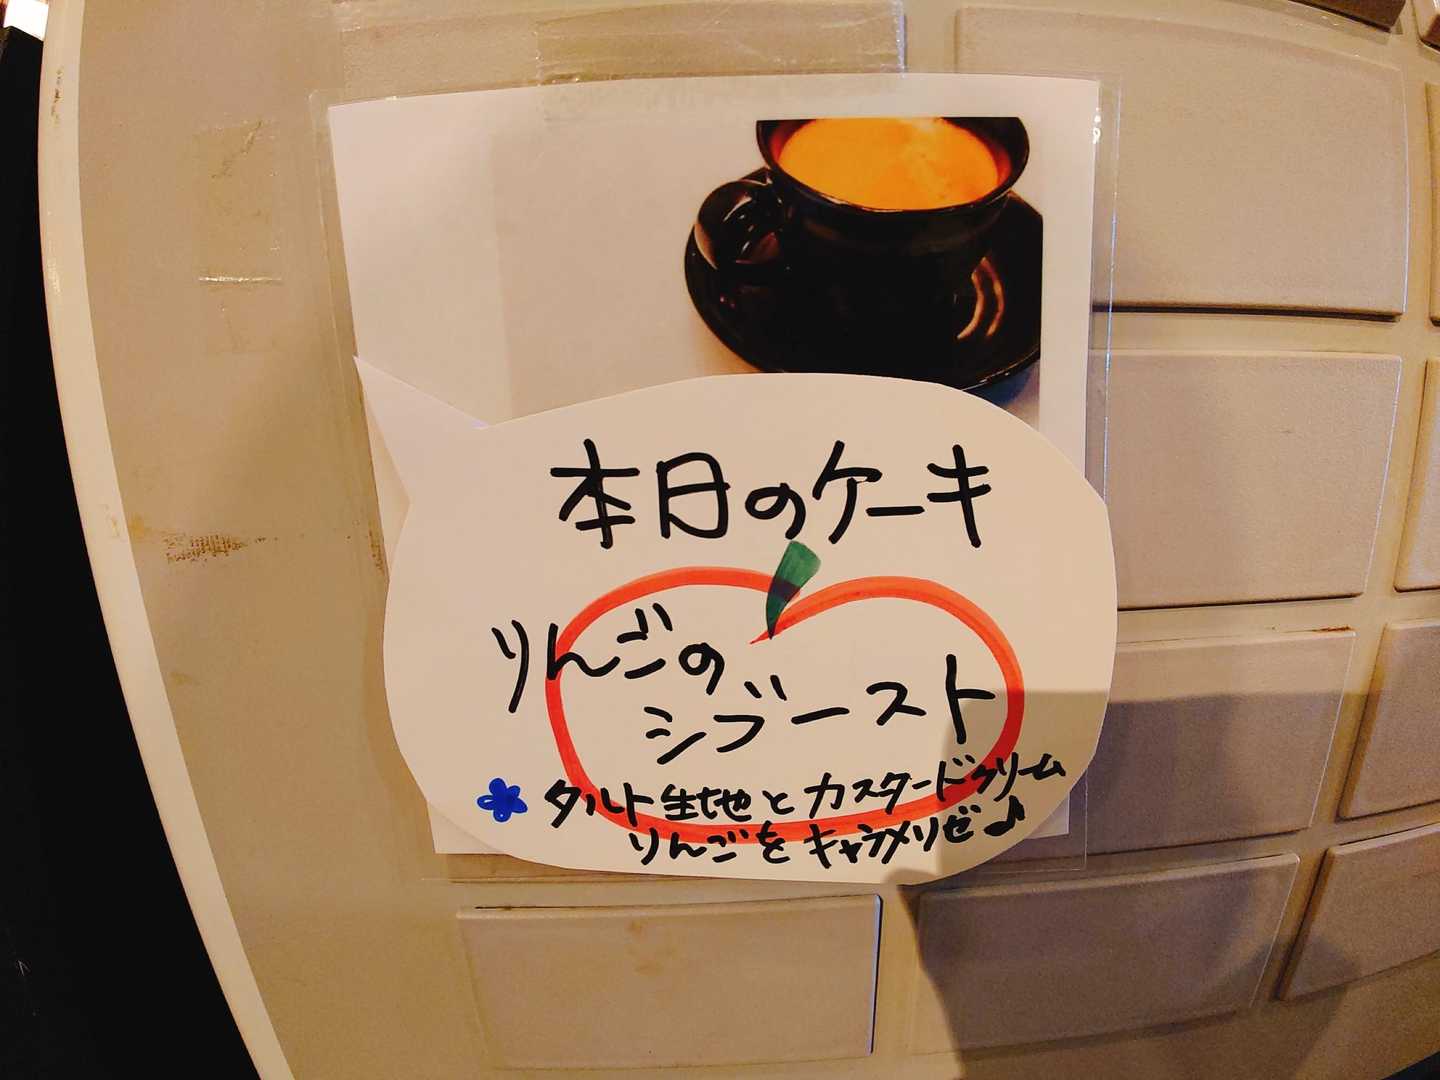 本日のケーキ
りんごの
シブースト
タルト生地とカスタードクリーム
りんごをキャラメリゼ♪